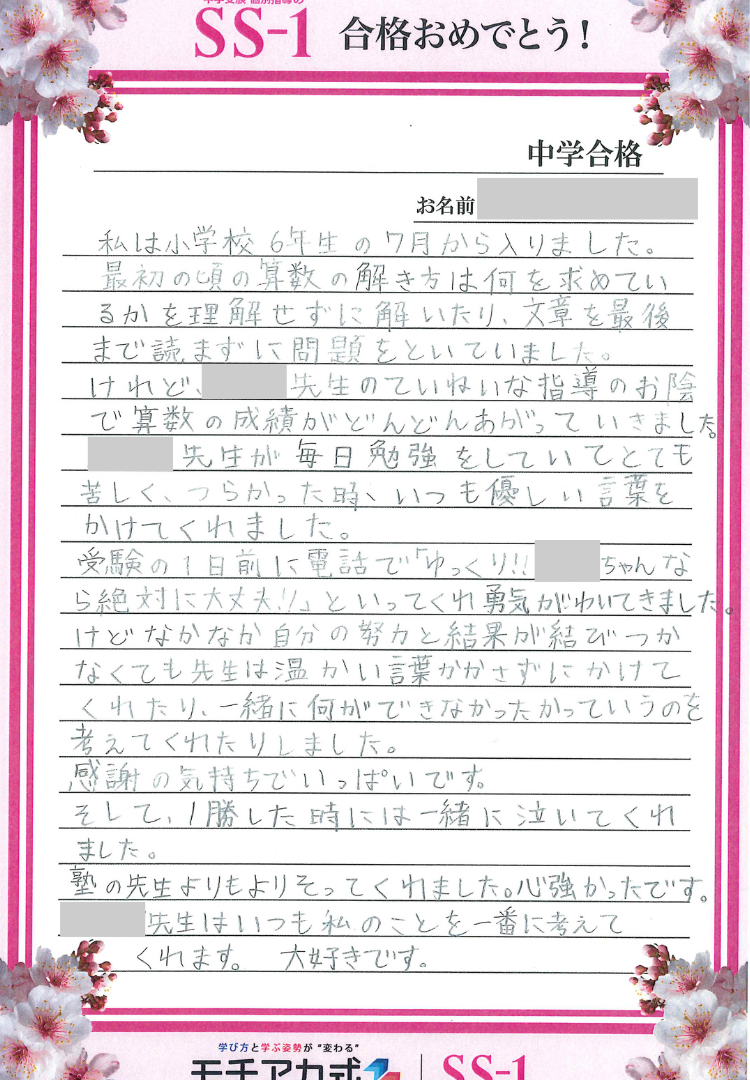 中学受験 個別指導の
SS-1 合格おめでとう!
中学合格
お名前
私は小学校6年生の7月から入りました。
最初の頃の算数の解き方は何を求めてい
るかを理解せずに解いたり、文章を最後
まで読まずに問題をといていました。
けれど、先生のていねいな指導のお陰
で算数の成績がどんどんあがっていきました。
先生が毎日勉強をしていてとても
苦しく、つらかった時、いつも優しい言葉を
かけてくれました。
受験の1日前に電話で「ゆっくり!!ちゃんな
ら絶対に大丈夫!!」といってくれ勇気がわいてきました。
けどなかなか自分の努力と結果が結びつか
なくても先生は温かい言葉かかさずにかけて
くれたり、一緒に何ができなかったかっていうのを
考えてくれたりしました。
感謝の気持ちでいっぱいです。
そして、1勝した時には一緒に泣いてくれ
ました。
塾の先生よりもよりそってくれました。心強かったです。
先生はいつも私のことを一番に考えて
くれます。 大好きです。
学び方と学ぶ姿勢が"変わる"
モチアカ式 SS-1